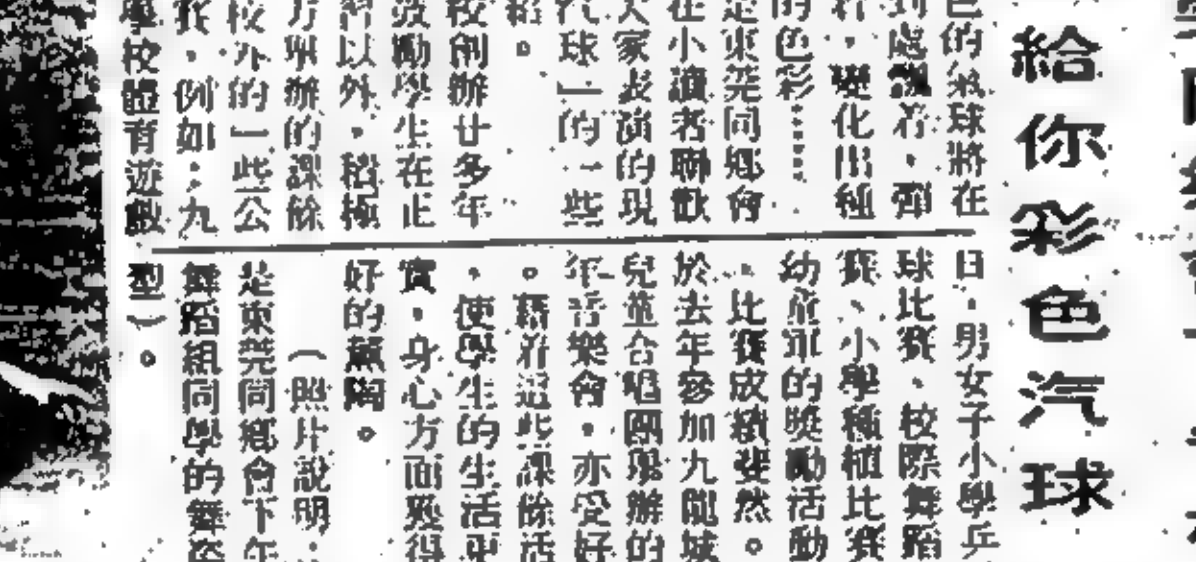 給你彩色汽球
色的氣球將在
到處飄着，彈
着，變化出種
的色彩……
是東莞同鄉會
在小讀者聯歡
大家表演的現
汽球」的一些
紹。
校創辦廿多年
鼓勵學生在正
習以外，積極
方舉辦的課餘
校外的一些公
我，例如：九
學校體育遊戲
日，男女子小學乒
球比賽、校際舞蹈
賽、小學種植比賽
幼童軍的獎勵活動
，比賽成績斐然。
於去年參加九龍城
兒童合唱團舉辦的
年音樂會，亦受好
。藉着這些課餘活
，使學生的生活更
實，身心方面獲得
好的薰陶。
（照片說明：
是東莞同鄉會下午
舞蹈組同學的舞姿
型）。